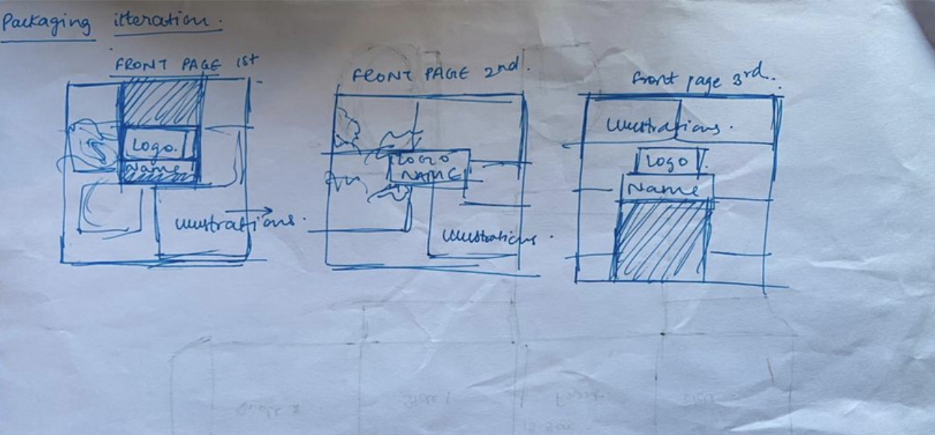 Packaging itteration.
FRONT PAGE 1st
Logo.
Name
illustrations.
FRONT PAGE 2nd.
LOGO
NAME
illustrations.
Front page 3rd.
illustrations.
Logo
Name